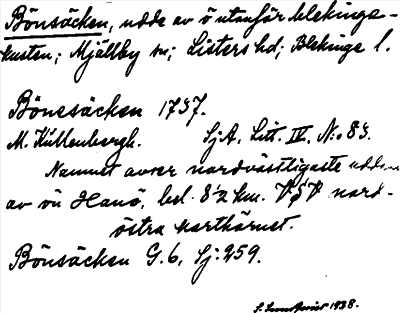 Bönsäcken, udde av ö utanför blekinge-
kusten; Mjällby sn; Listers hd; Blekinge l.
Bönesäcken 1737.
M. Kullenbergh. SjA, Litt. IV, N:o 83.
Namnet avser nordvästligaste udden
av ön Hanö, bel. 8½ km. nord-
östra karthörnet.
Bönsäcken G. 6, Sj: 259.
1938.